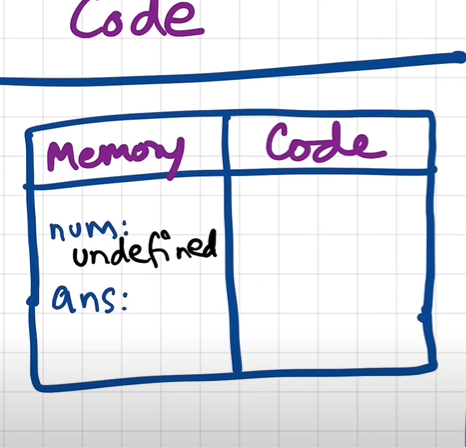 Code
Memory Code
num:
undefined
ans: